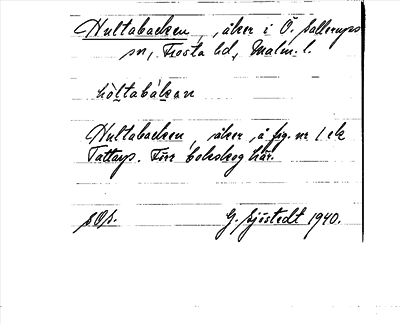 Hultabacken, åker i Ö. Sallerups
sn, Frosta hd, Malm. l.
hòltabákan
Hultabacken, åker, å fig. nr 1 ek
Tattarp. Förr bokskog här.
G. Sjöstedt 1940.